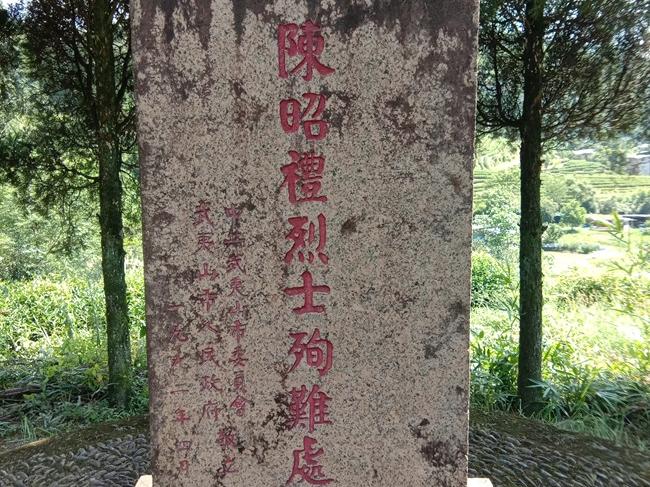 陳昭禮烈士殉難處
中共武夷山市委員會
武夷山市人民政府
敬立
一九九二年四月